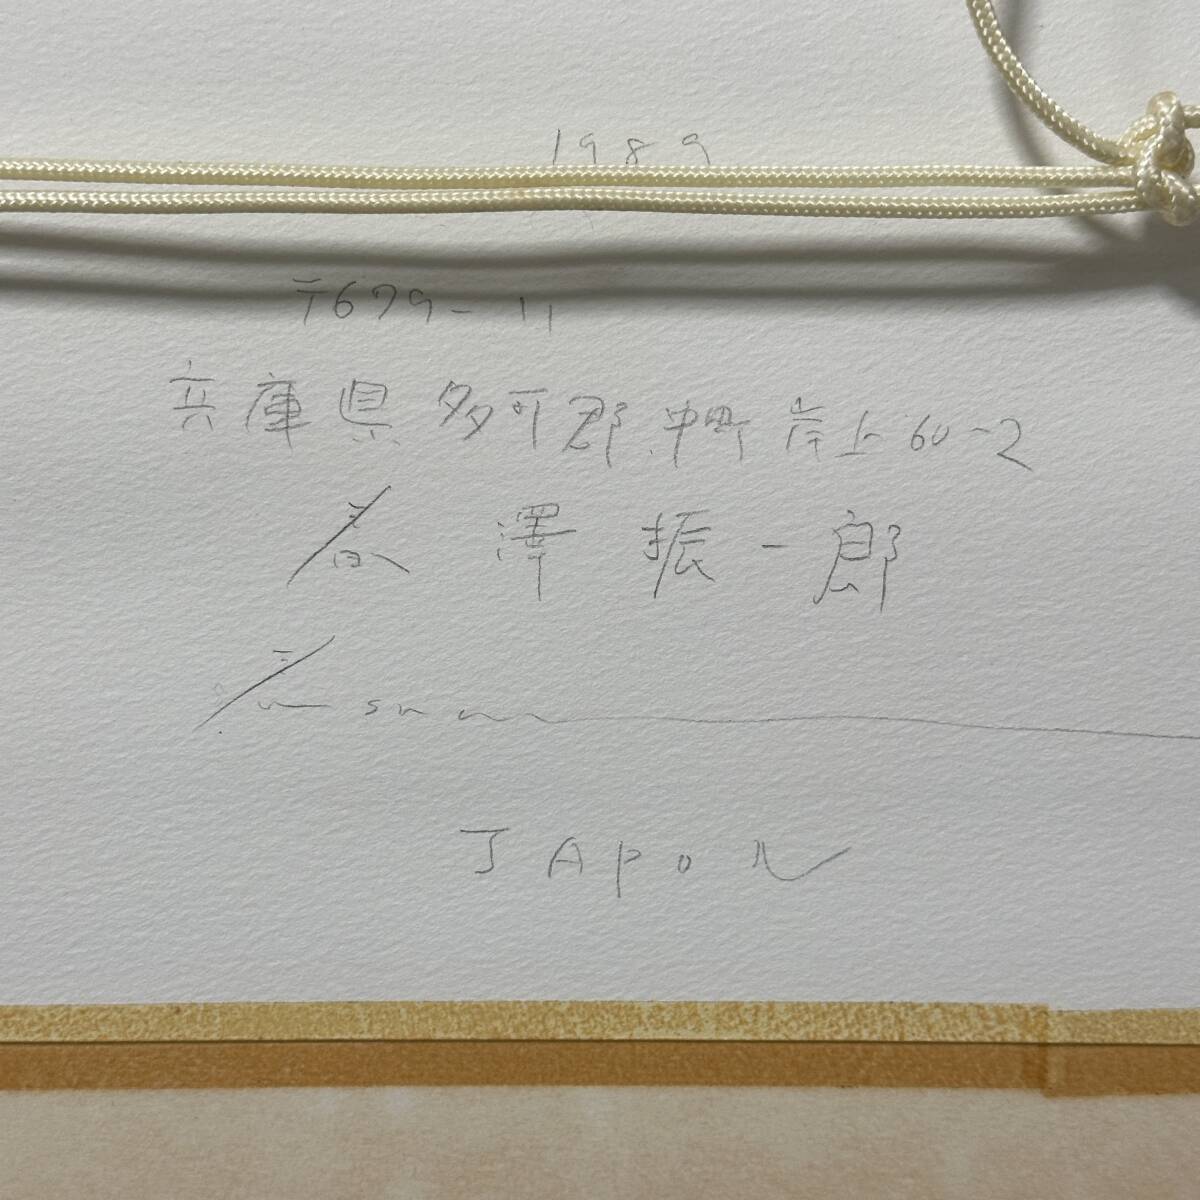 1989
〒679-11
兵庫県多可郡中町岸上60-2
春澤振一郎
JAPON